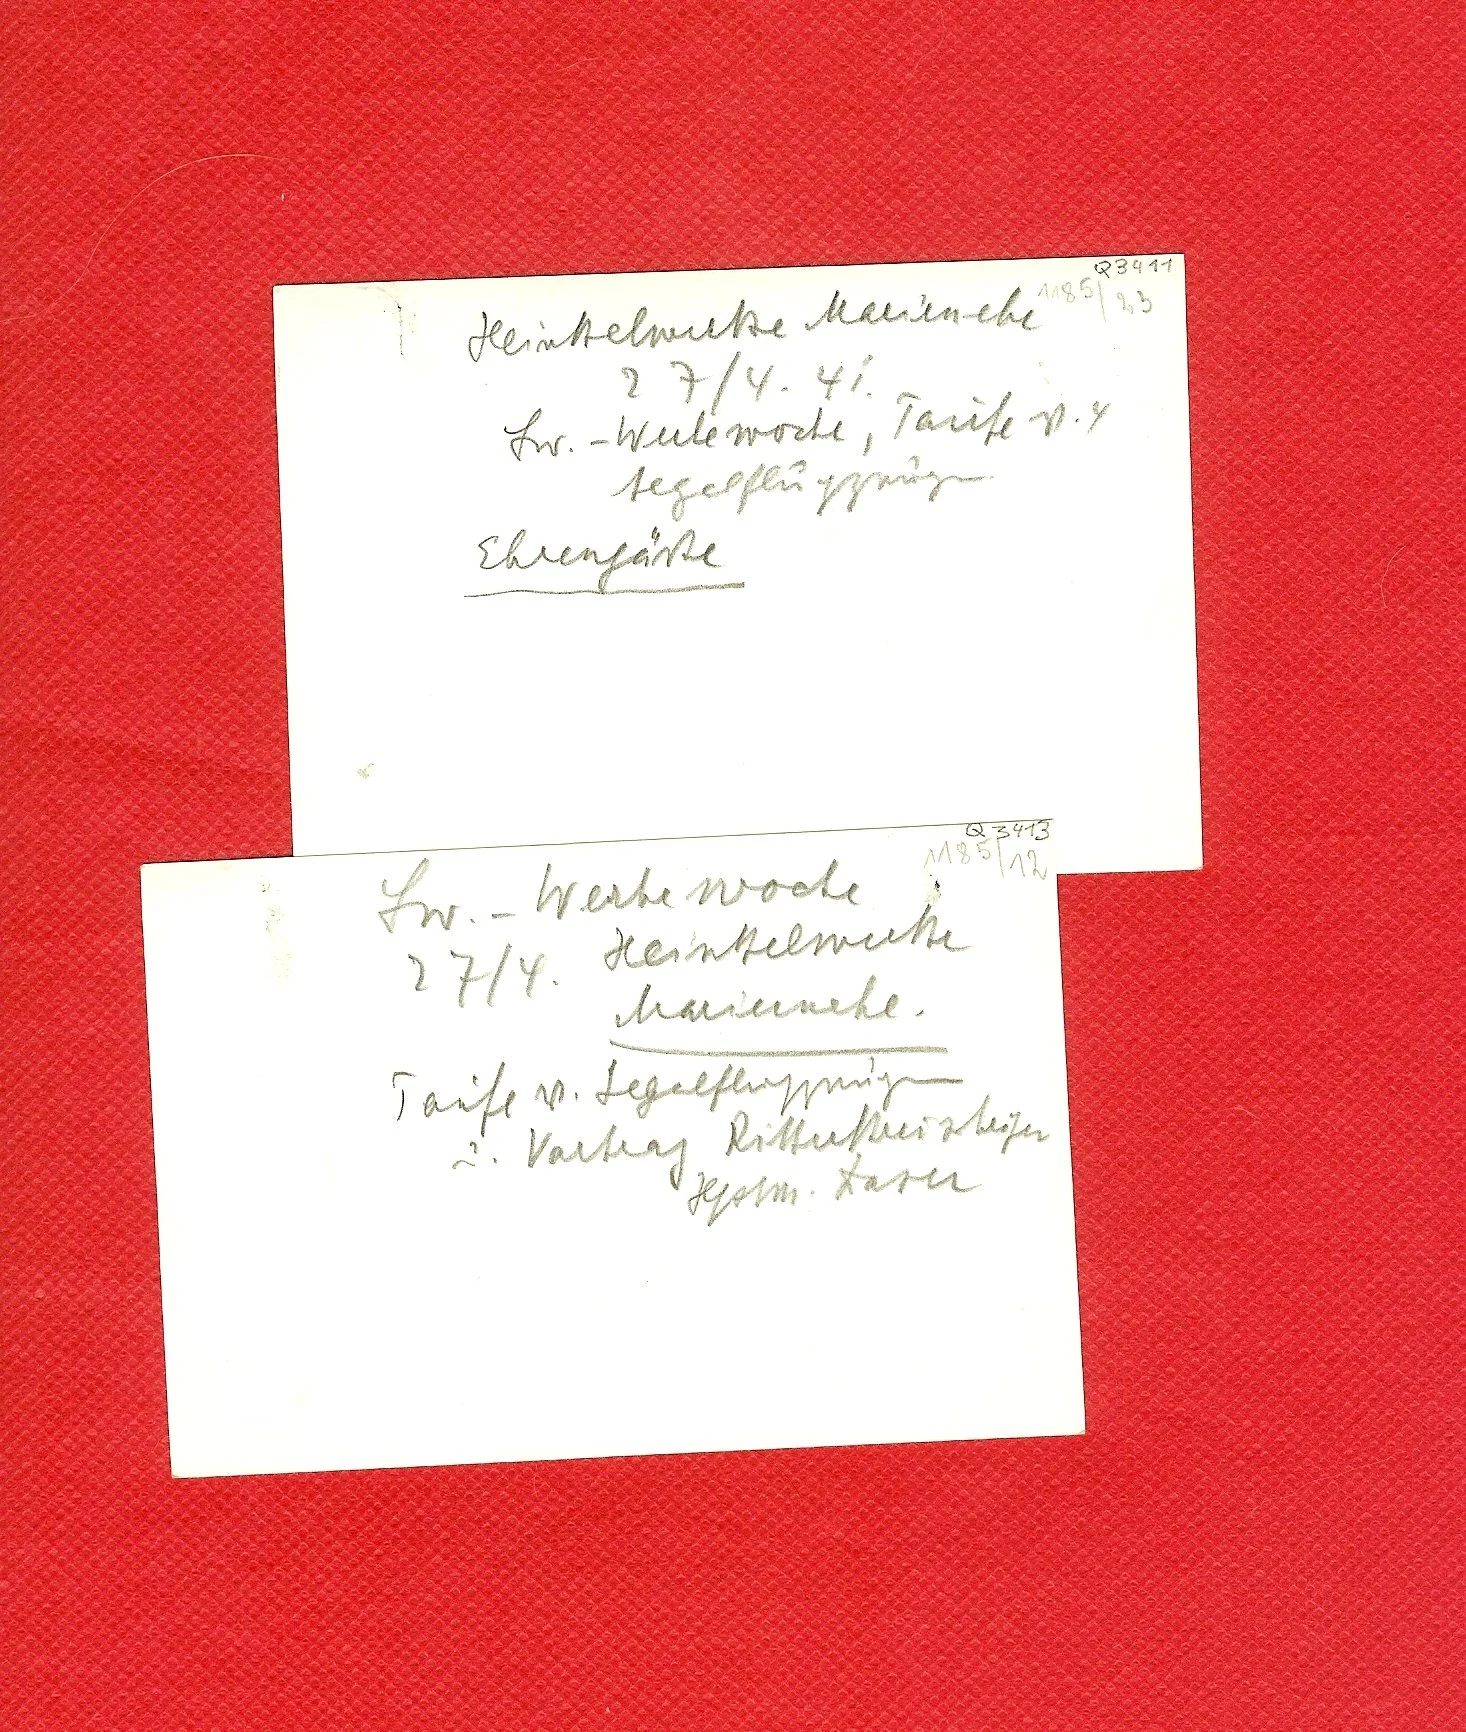 Q3411
1185/23
Heinkelwerke Marienehe
27/4. 41.
Lw. - Werbewoche, Taufe v. 4
Segelflugzeugen
Ehrengäste
Q 3413
1185/12
Lw. - Werbewoche
27/4. Heinkelwerke
Marienehe.
Taufe v. Segelflugzeugen
u. Vortrag Ritterkreuzträger
Hptm.